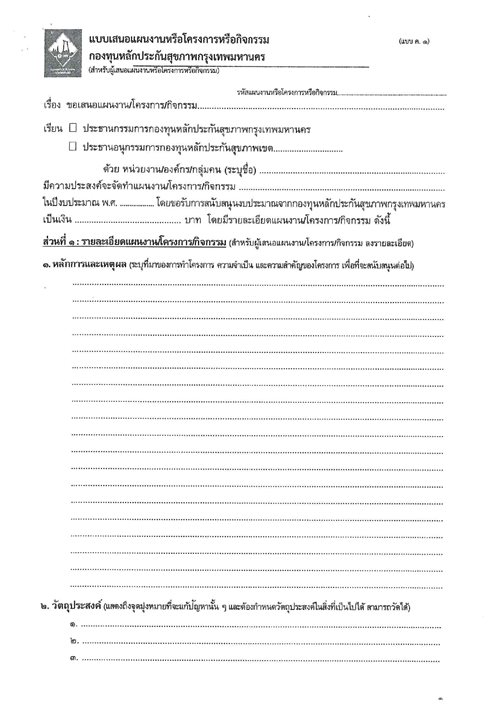 แบบเสนอแผนงานหรือโครงการหรือกิจกรรม
(แบบ ค. ๑)
กองทุนหลักประกันสุขภาพกรุงเทพมหานคร
(สำหรับผู้เสนอแผนงานหรือโครงการหรือกิจกรรม)
รหัสแผนงานหรือโครงการหรือกิจกรรม....................................
เรื่อง ขอเสนอแผนงาน/โครงการ/กิจกรรม....................................
เรียน ☐ ประธานกรรมการกองทุนหลักประกันสุขภาพกรุงเทพมหานคร
☐ ประธานอนุกรรมการกองทุนหลักประกันสุขภาพเขต....................................
ด้วย หน่วยงาน/องค์กร/กลุ่มคน (ระบุชื่อ) ....................................
มีความประสงค์จะจัดทำแผนงาน/โครงการ/กิจกรรม ....................................
ในปีงบประมาณ พ.ศ. ................. โดยขอรับการสนับสนุนงบประมาณจากกองทุนหลักประกันสุขภาพกรุงเทพมหานคร
เป็นเงิน .................................... บาท โดยมีรายละเอียดแผนงาน/โครงการ/กิจกรรม ดังนี้
ส่วนที่ ๑ : รายละเอียดแผนงานโครงการ/กิจกรรม (สำหรับผู้เสนอแผนงาน/โครงการ/กิจกรรม ลงรายละเอียด)
๑. หลักการและเหตุผล (ระบุที่มาของการทำโครงการ ความจำเป็น และความสำคัญของโครงการ เพื่อที่จะสนับสนุนต่อไป)
๒. วัตถุประสงค์ (แสดงถึงจุดมุ่งหมายที่จะแก้ปัญหานั้น ๆ และต้องกำหนดวัตถุประสงค์ในสิ่งที่เป็นไปได้ สามารถวัดได้)
๑. ....................................
๒. ....................................
๓. ....................................
๑